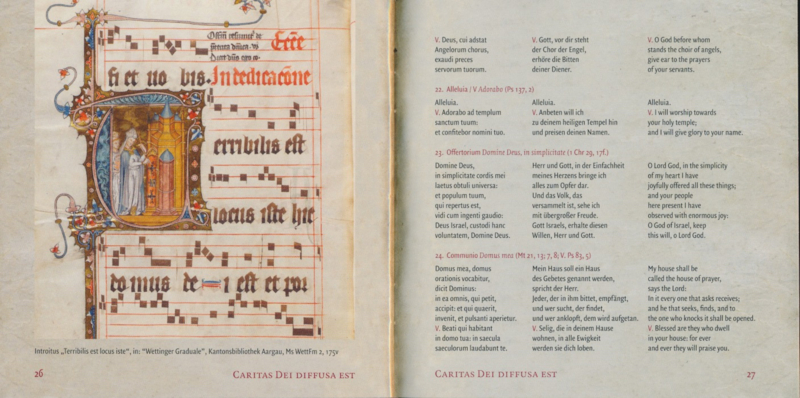 Ecce
si et no bis. In dedicacõne
erribilis est
locus iste hic
domus de i est et por
Introitus „Terribilis est locus iste“, in: "Wettinger Graduale", Kantonsbibliothek Aargau, Ms WettFm 2, 175v
26
Caritas Dei diffusa est
V. Deus, cui adstat
Angelorum chorus,
exaudi preces
servorum tuorum.
V. Gott, vor dir steht
der Chor der Engel,
erhöre die Bitten
deiner Diener.
V. O God before whom
stands the choir of angels,
give ear to the prayers
of your servants.
22. Alleluia / V Adorabo (Ps 137, 2)
Alleluia.
V. Adorabo ad templum
sanctum tuum:
et confitebor nomini tuo.
Alleluia.
V. Anbeten will ich
zu deinem heiligen Tempel hin
und preisen deinen Namen.
Alleluia.
V. I will worship towards
your holy temple;
and I will give glory to your name.
23. Offertorium Domine Deus, in simplicitate (1 Chr 29, 17f.)
Domine Deus,
in simplicitate cordis mei
laetus obtuli universa:
et populum tuum,
qui repertus est,
vidi cum ingenti gaudio:
Deus Israel, custodi hanc
voluntatem, Domine Deus.
Herr und Gott, in der Einfachheit
meines Herzens bringe ich
alles zum Opfer dar.
Und das Volk, das
versammelt ist, sehe ich
mit übergroßer Freude.
Gott Israels, erhalte diesen
Willen, Herr und Gott.
O Lord God, in the simplicity
of my heart I have
joyfully offered all these things;
and your people
here present I have
observed with enormous joy:
O God of Israel, keep
this will, o Lord God.
24. Communio Domus mea (Mt 21, 13; 7, 8; V. Ps 83, 5)
Domus mea, domus
orationis vocabitur,
dicit Dominus:
in ea omnis, qui petit,
accipit: et qui quaerit,
invenit, et pulsanti aperietur.
V. Beati qui habitant
in domo tua: in saecula
saeculorum laudabunt te.
Mein Haus soll ein Haus
des Gebetes genannt werden,
spricht der Herr.
Jeder, der in ihm bittet, empfängt,
und wer sucht, der findet,
und wer anklopft, dem wird aufgetan.
V. Selig, die in deinem Hause
wohnen, in alle Ewigkeit
werden sie dich loben.
My house shall be
called the house of prayer,
says the Lord:
In it every one that asks receives;
and he that seeks, finds, and to
the one who knocks it shall be opened.
V. Blessed are they who dwell
in your house: for ever
and ever they will praise you.
Caritas Dei diffusa est
27